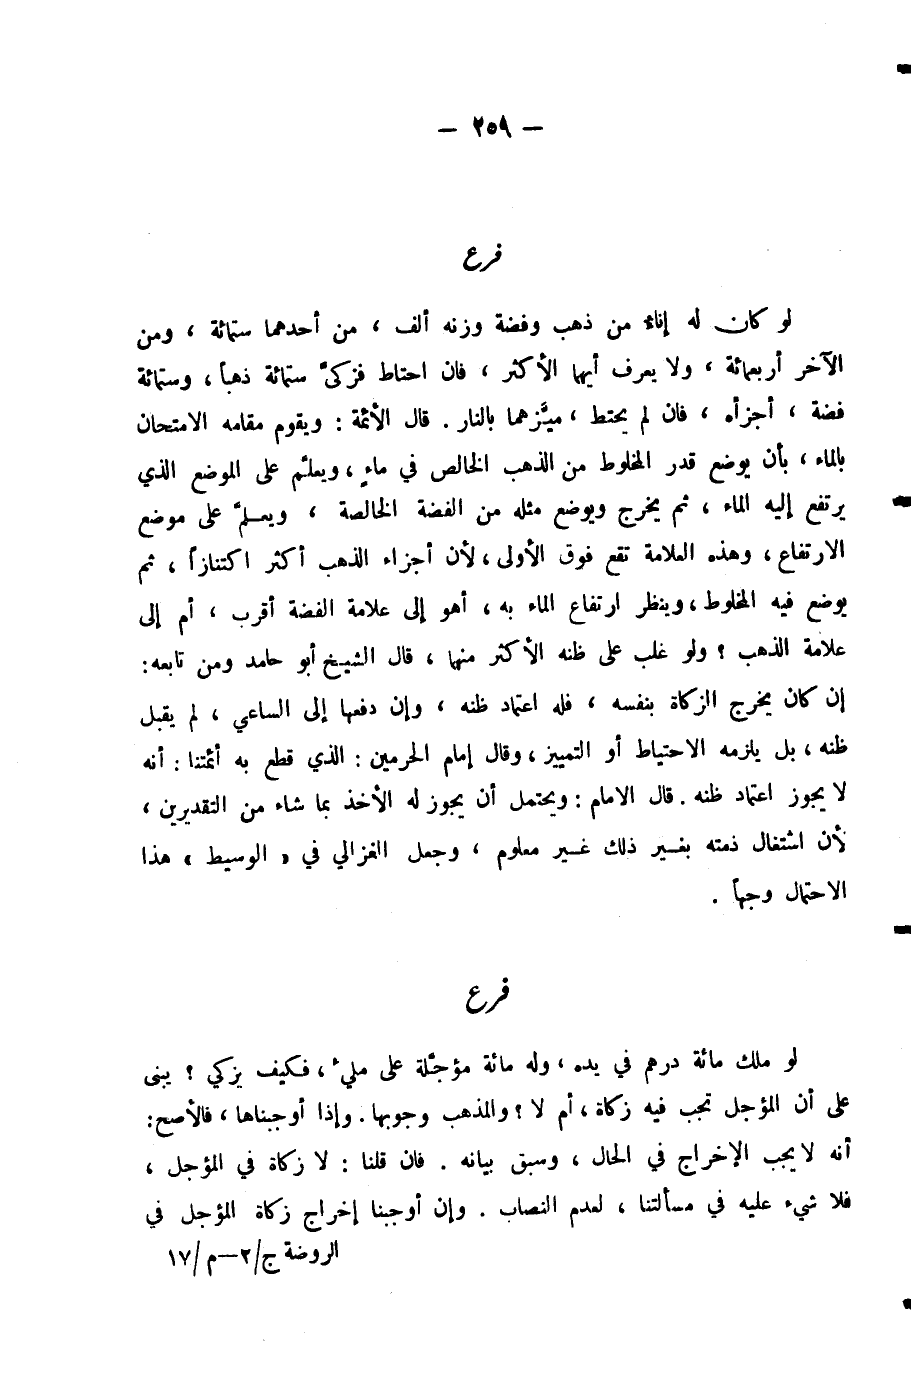 — ٢٥٩ —
فرع
لو كان له إناء من ذهب وفضة وزنه ألف ، من أحدهما ستمائة ، ومن
الآخر أربعمائة ، ولا يعرف أيهما الأكثر ، فان احتاط فزكىّ ستمائة ذهباً ، وستمائة
فضة ، أجزأه ، فان لم يحتط ، ميَّزهما بالنار . قال الأئمة : ويقوم مقامه الامتحان
بالماء ، بأن يوضع قدر المخلوط من الذهب الخالص في ماءٍ ، ويعلّم على الموضع الذي
يرتفع إليه الماء ، ثم يخرج ويوضع مثله من الفضة الخالصة ، ويعلمّ على موضع
الارتفاع ، وهذه العلامة تقع فوق الأولى ، لأن أجزاء الذهب أكثر اكتنازاً ، ثم
يوضع فيه المخلوط ، وينظر ارتفاع الماء به ، أهو إلى علامة الفضة أقرب ، أم إلى
علامة الذهب ؟ ولو غلب على ظنه الأكثر منهما ، قال الشيخ أبو حامد ومن تابعه :
إن كان يخرج الزكاة بنفسه ، فله اعتماد ظنه ، وإن دفعها إلى الساعي ، لم يقبل
ظنه ، بل يلزمه الاحتياط أو التمييز ، وقال إمام الحرمين : الذي قطع به أئمتنا : أنه
لا يجوز اعتماد ظنه . قال الامام : ويحتمل أن يجوز له الأخذ بما شاء من التقديرين ،
لأن اشتغال ذمته بغير ذلك غير معلوم ، وجعل الغزالي في « الوسيط » هذا
الاحتمال وجهاً .
فرع
لو ملك مائة درهم في يده ، وله مائة مؤجّلة على مليء ، فكيف يزكي ؟ يبنى
على أن المؤجل تجب فيه زكاة ، أم لا ؟ والمذهب وجوبها . وإذا أوجبناها ، فالأصح :
أنه لا يجب الإخراج في الحال ، وسبق بيانه . فان قلنا : لا زكاة في المؤجل ،
فلا شيء عليه في مسألتنا ، لعدم النصاب . وإن أوجبنا إخراج زكاة المؤجل في
الروضة ج/٢—م/١٧